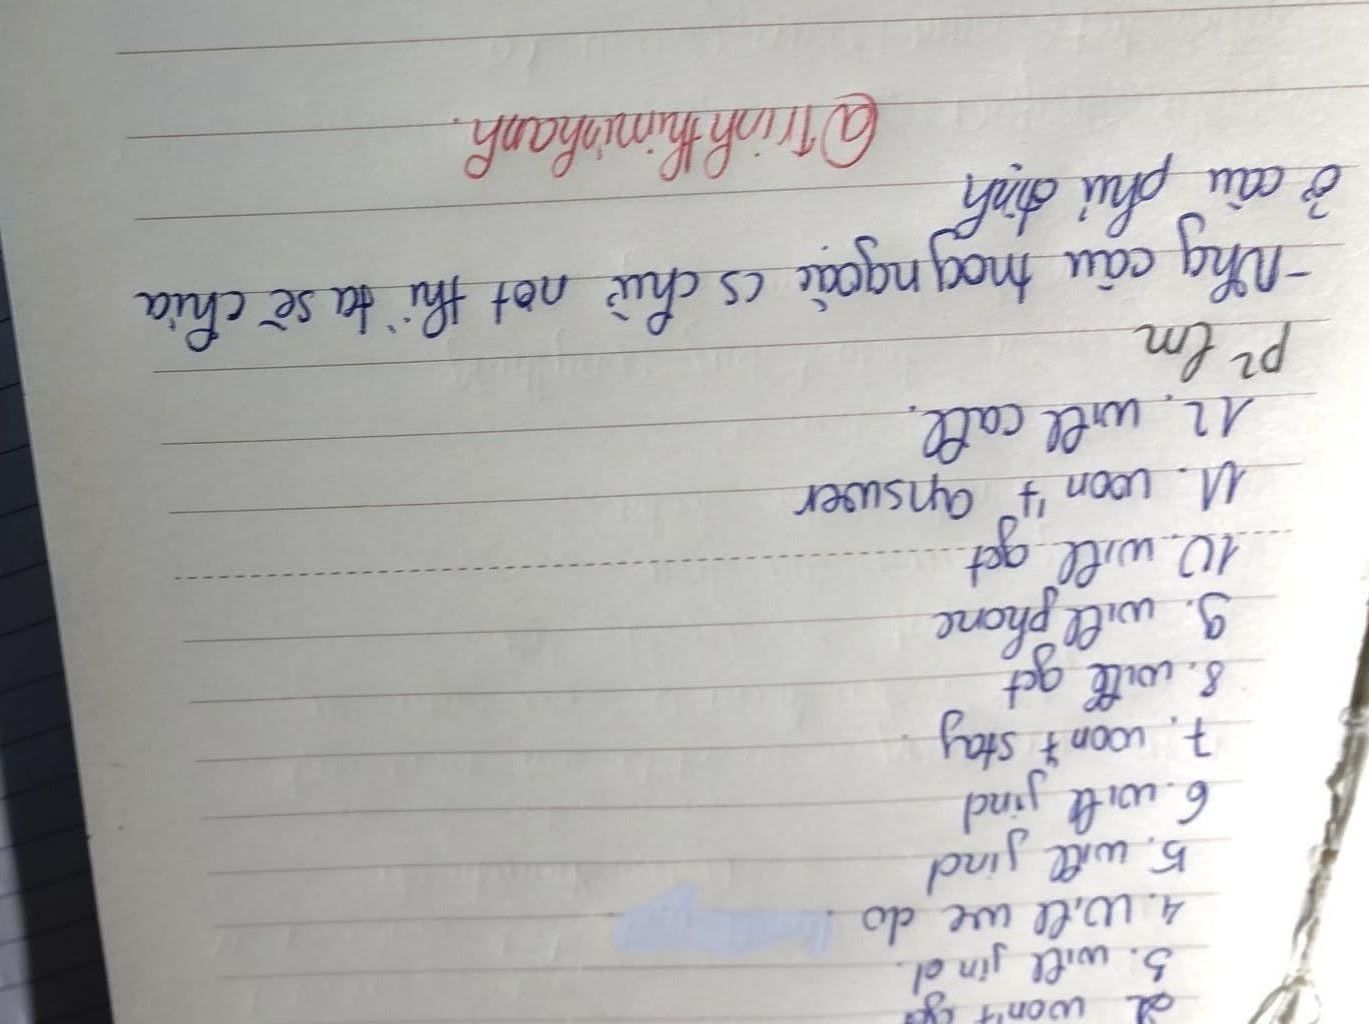 2 won't
3. will find.
4. Will we do.
5. will find
6. will find
7. won't stay.
8. will get
9. will phone
10. will get
11. won't answer
12. will call.
p² lm
- Nhg câu trog ngoặc cs chữ not thì ta sẽ chia
ở câu phủ định
@Trinhthiminhanh.